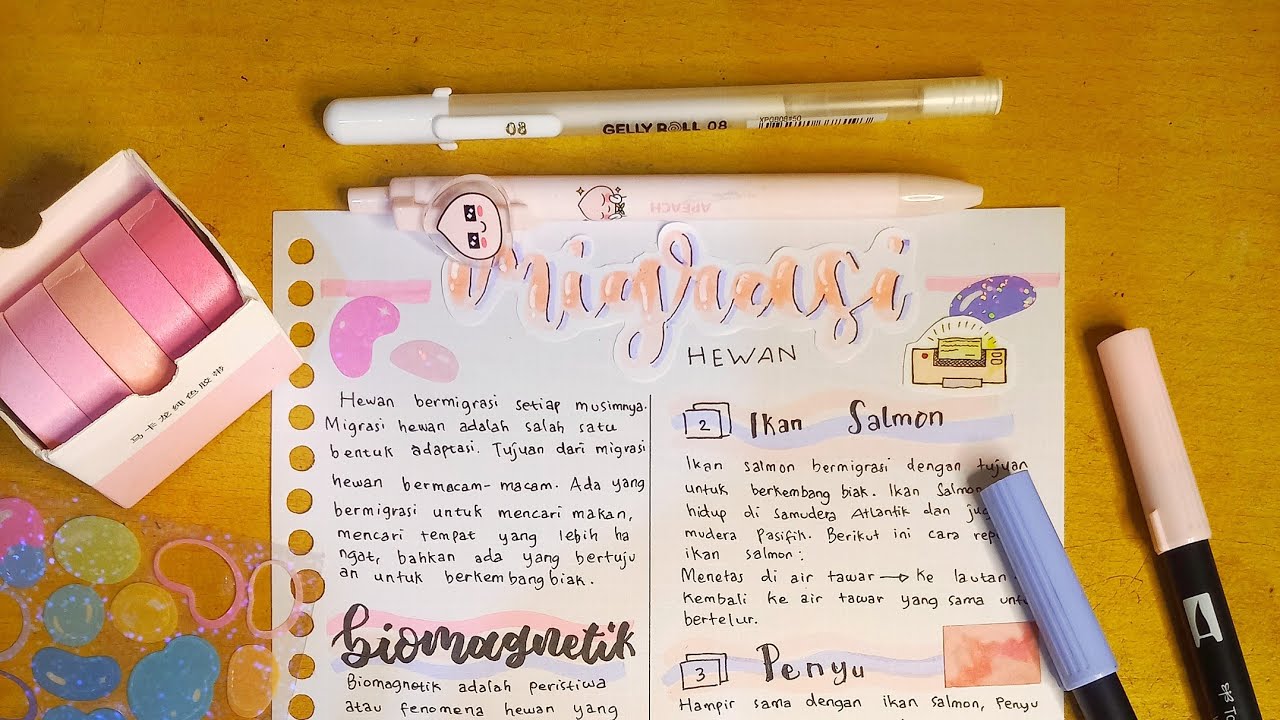 08 GELLY ROLL 08
XPGB08#50
APEACH
migrasi
HEWAN
马卡龙纯色胶带
Hewan bermigrasi setiap musimnya.
Migrasi hewan adalah salah satu
bentuk adaptasi. Tujuan dari migrasi
hewan bermacam-macam. Ada yang
bermigrasi untuk mencari makan,
mencari tempat yang lebih ha
ngat, bahkan ada yang bertuju
an untuk berkembang biak.
biomagnetik
Biomagnetik adalah peristiwa
atau fenomena hewan yang
2 Ikan Salmon
Ikan salmon bermigrasi dengan tujuan
untuk berkembang biak. Ikan Salmon
hidup di Samudera Atlantik dan
mudera Pasifik. Berikut ini cara
ikan salmon:
Menetas di air tawar → ke lautan
Kembali ke air tawar yang sama
bertelur.
3 Penyu
Hampir sama dengan ikan salmon, Penyu